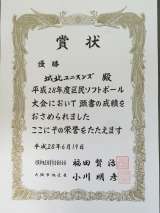 賞状
優勝
城北ユニオンズ 殿
平成28年度区民ソフトボール
大会において頭書の成績を
おさめられました
ここにその栄誉をたたえます
平成28年6月19日
福田賢治
小川明彦